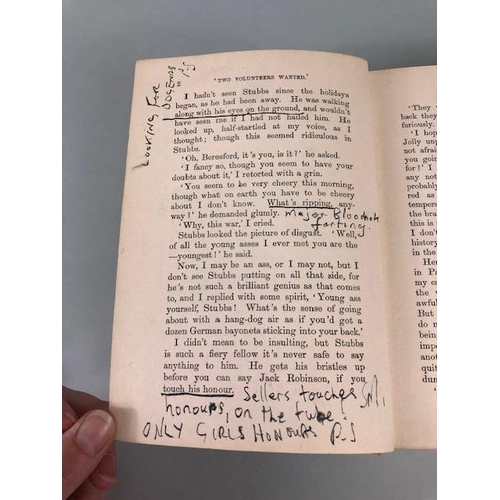 'TWO VOLUNTEERS WANTED.'
LOOKING FORE
DOGENDS
I hadn't seen Stubbs since the holidays
began, as he had been away. He was walking
along with his eyes on the ground, and wouldn't
have seen me if I had not hailed him. He
looked up, half-startled at my voice, as I
thought; though this seemed ridiculous in
Stubbs.
'Oh, Beresford, it's you, is it?' he asked.
'I fancy so, though you seem to have your
doubts about it,' I retorted with a grin.
'You seem to be very cheery this morning,
though what on earth you have to be cheery
about I don't know. What's ripping, any-
way?' he demanded glumly. Major Bloodnok
farting
'Why, this war,' I cried.
Stubbs looked the picture of disgust. 'Well,
of all the young asses I ever met you are the
—youngest!' he said.
Now, I may be an ass, or I may not, but I
don't see Stubbs putting on all that side, for
he's not such a brilliant genius as that comes
to, and I replied with some spirit, 'Young ass
yourself, Stubbs! What's the sense of going
about with a hang-dog air as if you'd got a
dozen German bayonets sticking into your back.'
I didn't mean to be insulting, but Stubbs
is such a fiery fellow it's never safe to say
anything to him. He gets his bristles up
before you can say Jack Robinson, if you
touch his honour. Sellers touches
honours, on the
ONLY GIRLS HONOURS P.S
'They w
furiously.
'I hop
Jolly unp
not afrai
you goin
for thin
probably
and red
as a
temper
the bra
this w
'I don't
history
in the
Here
in P
my c
awfu
But
of the
'A
'I
do
'W